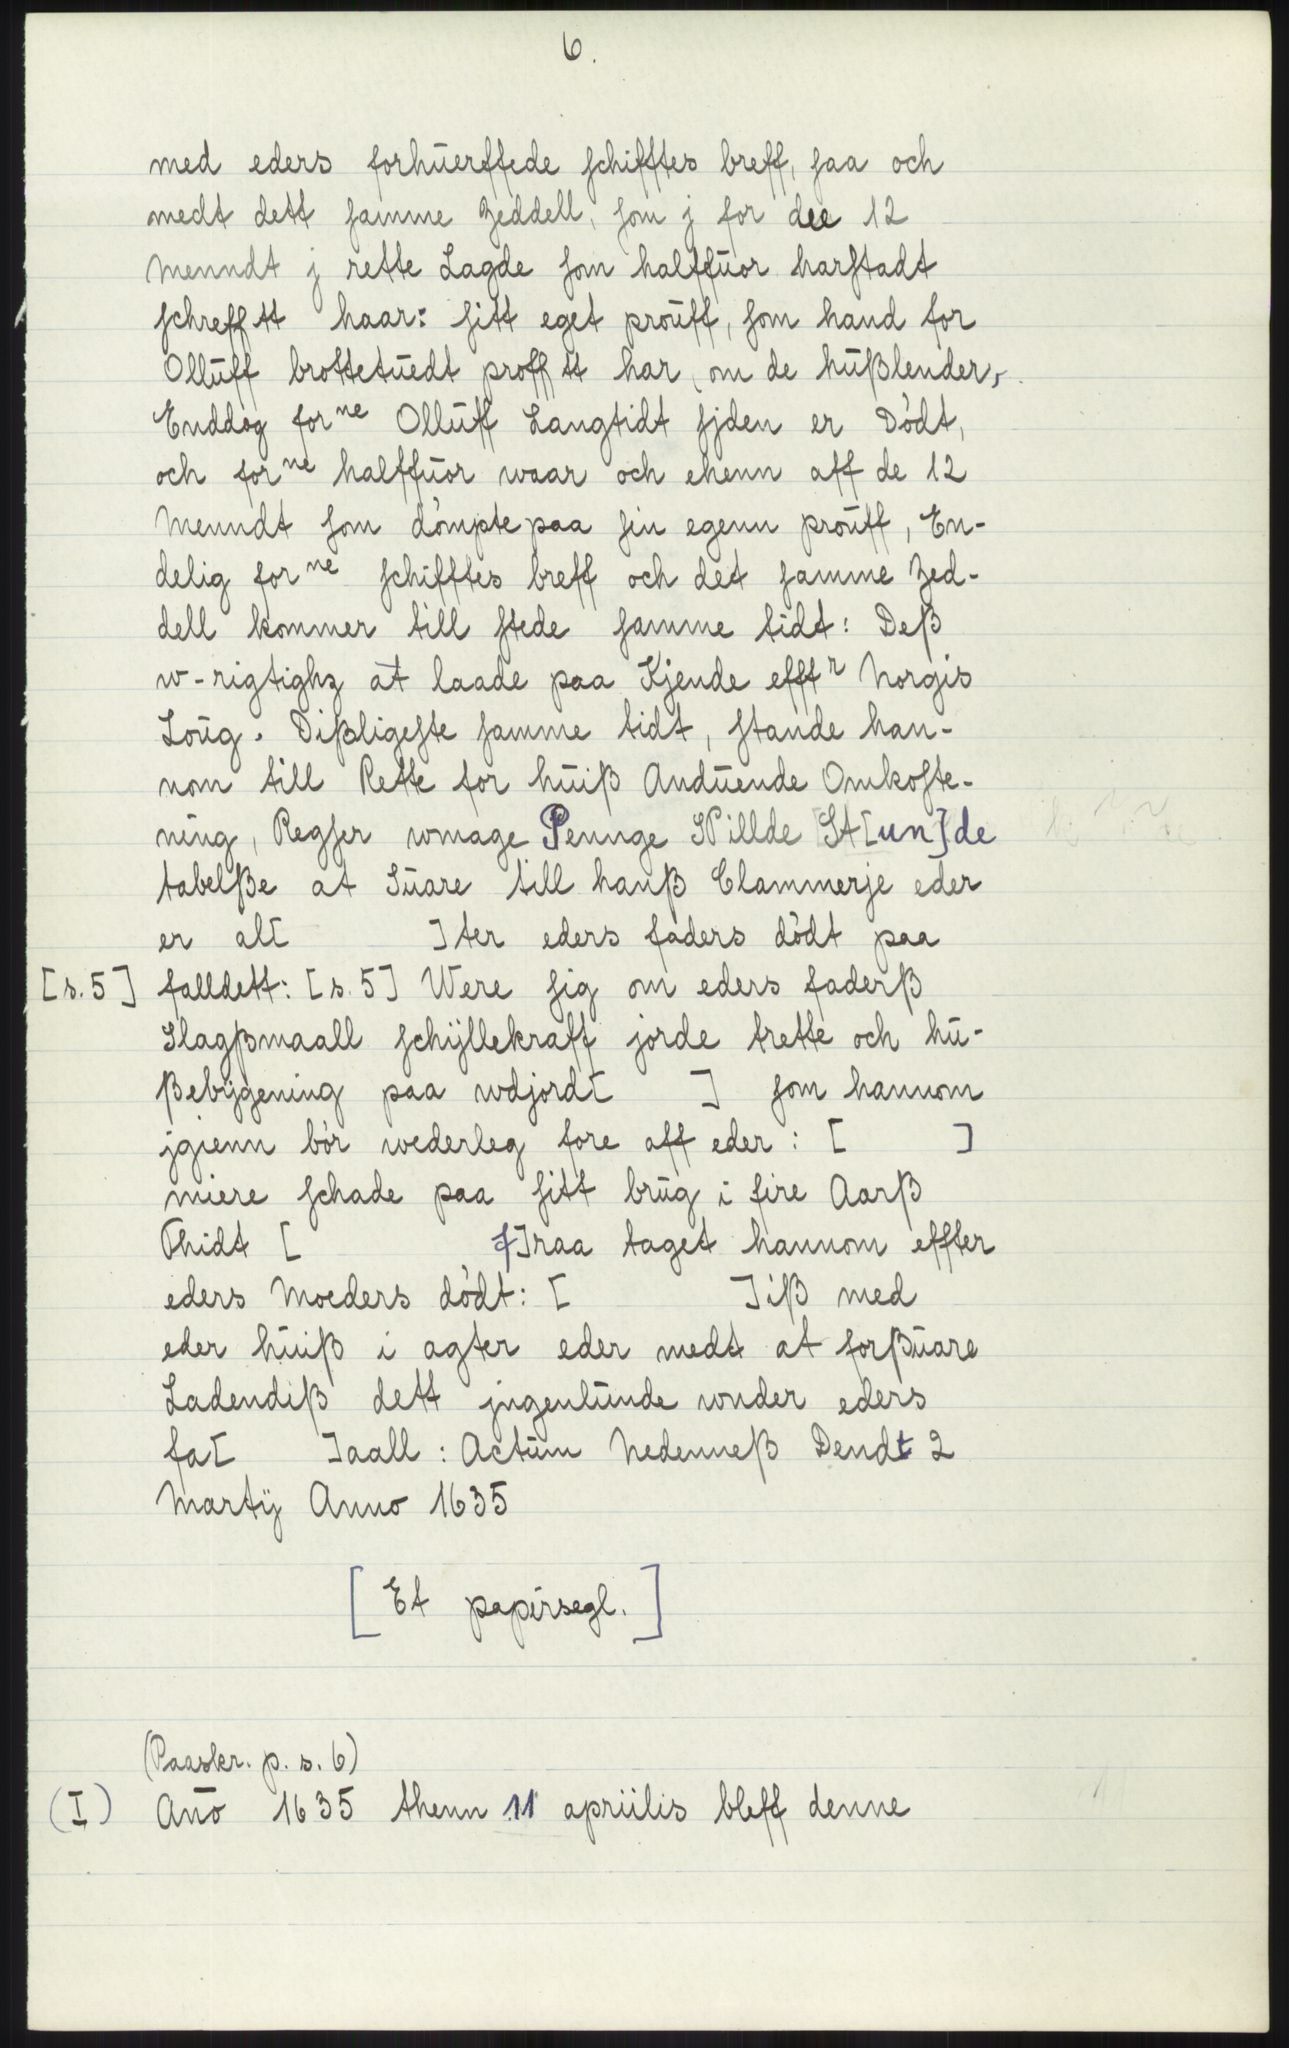 6.
med eders forhuerffede schifftes breff, saa och
medt dett samme Zeddell, som j for dee 12
Menndt j rette Lagde som halffuor harstadt
schreff tt haar: sitt eget prouff, som hand for
Olluff brottetuedt proff tt har, om de hußlender,
Enddog forne Olluff Langtidt sjden er Dödt,
och forne halffuor waar och ehenn aff de 12
Menndt som dömpte paa sin egenn prouff, En-
delig forne schifftes breff och det samme Zed-
dell kommer till stede samme tidt: Deß
w-rigtighz at laade paa Kjende efftr Norgis
Loug. Dißligeste samme tidt, stande han-
nom till Rette for huiß Anduende Omkoste-
ning, Regser wmage Pennge SPillde St[un]de
tabelße at Suare till hanß Clammerje eder
er al[ ]ter eders faders dödt paa
[s. 5] falldett: [s. 5] Were sig om eders faderß
Slagßmaall schÿllekraff jorde trette och hu-
ßebÿgening paa wdjord[ ] som hannom
jgienn bör wederleg fore aff eder: [ ]
miere schade paa sitt brug i fire Aarß
Thidt [ f]raa taget hannom effter
eders Moeders dödt: [ ]iß med
eder huiß i agter eder medt at forßuare
Ladendiß dett jngenlunde wnder eders
fa[ ]aall: Actum Nedenneß Dendt 2
Martÿ Anno 1635
[Et papirsegl.]
(Paaskr. p. s. 6)
(I) Año 1635 thenn 11 apriilis bleff denne